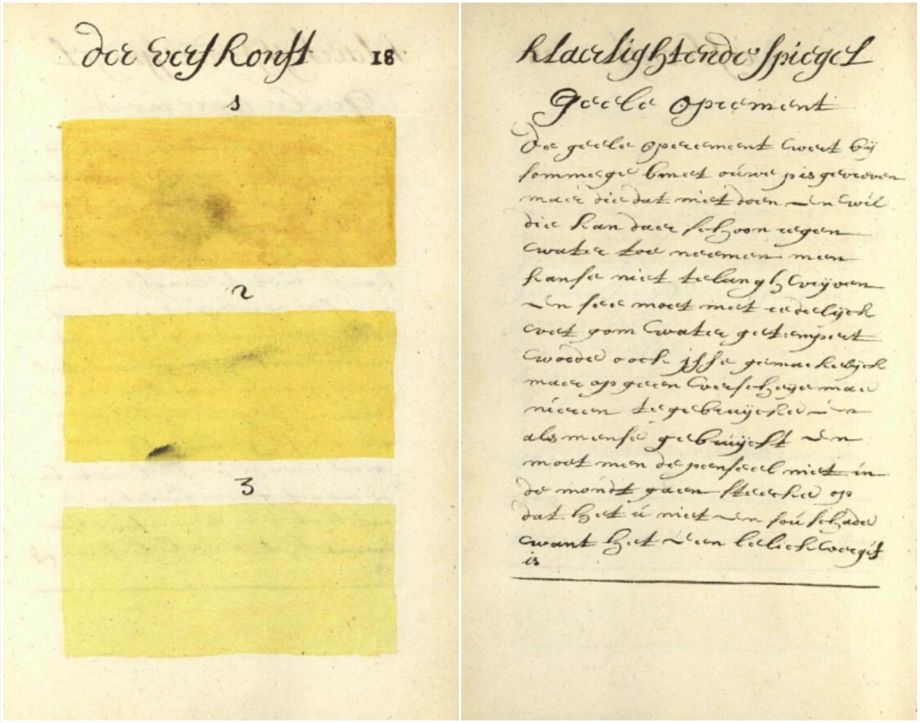 der verf konst 18
1
2
3
klaerlightende spiegel
geele oprement
De geele operement wert bij
sommege bmet ouwe pis gevreven
maer die dat niet doen en wil
die kan daer schoon regen
water toe neemen men
kanse niet te lang vrijven
en see moet met redelijck
vet gom water getempert
worde oock isse gemackelijck
maer op geen verscheije ma
nieren te gebruijcke en
als mense gebruijckt en
moet men de penseel niet in
de mondt gaen steecke op
dat het u niet en sou schade
want het een leelick vergif
is